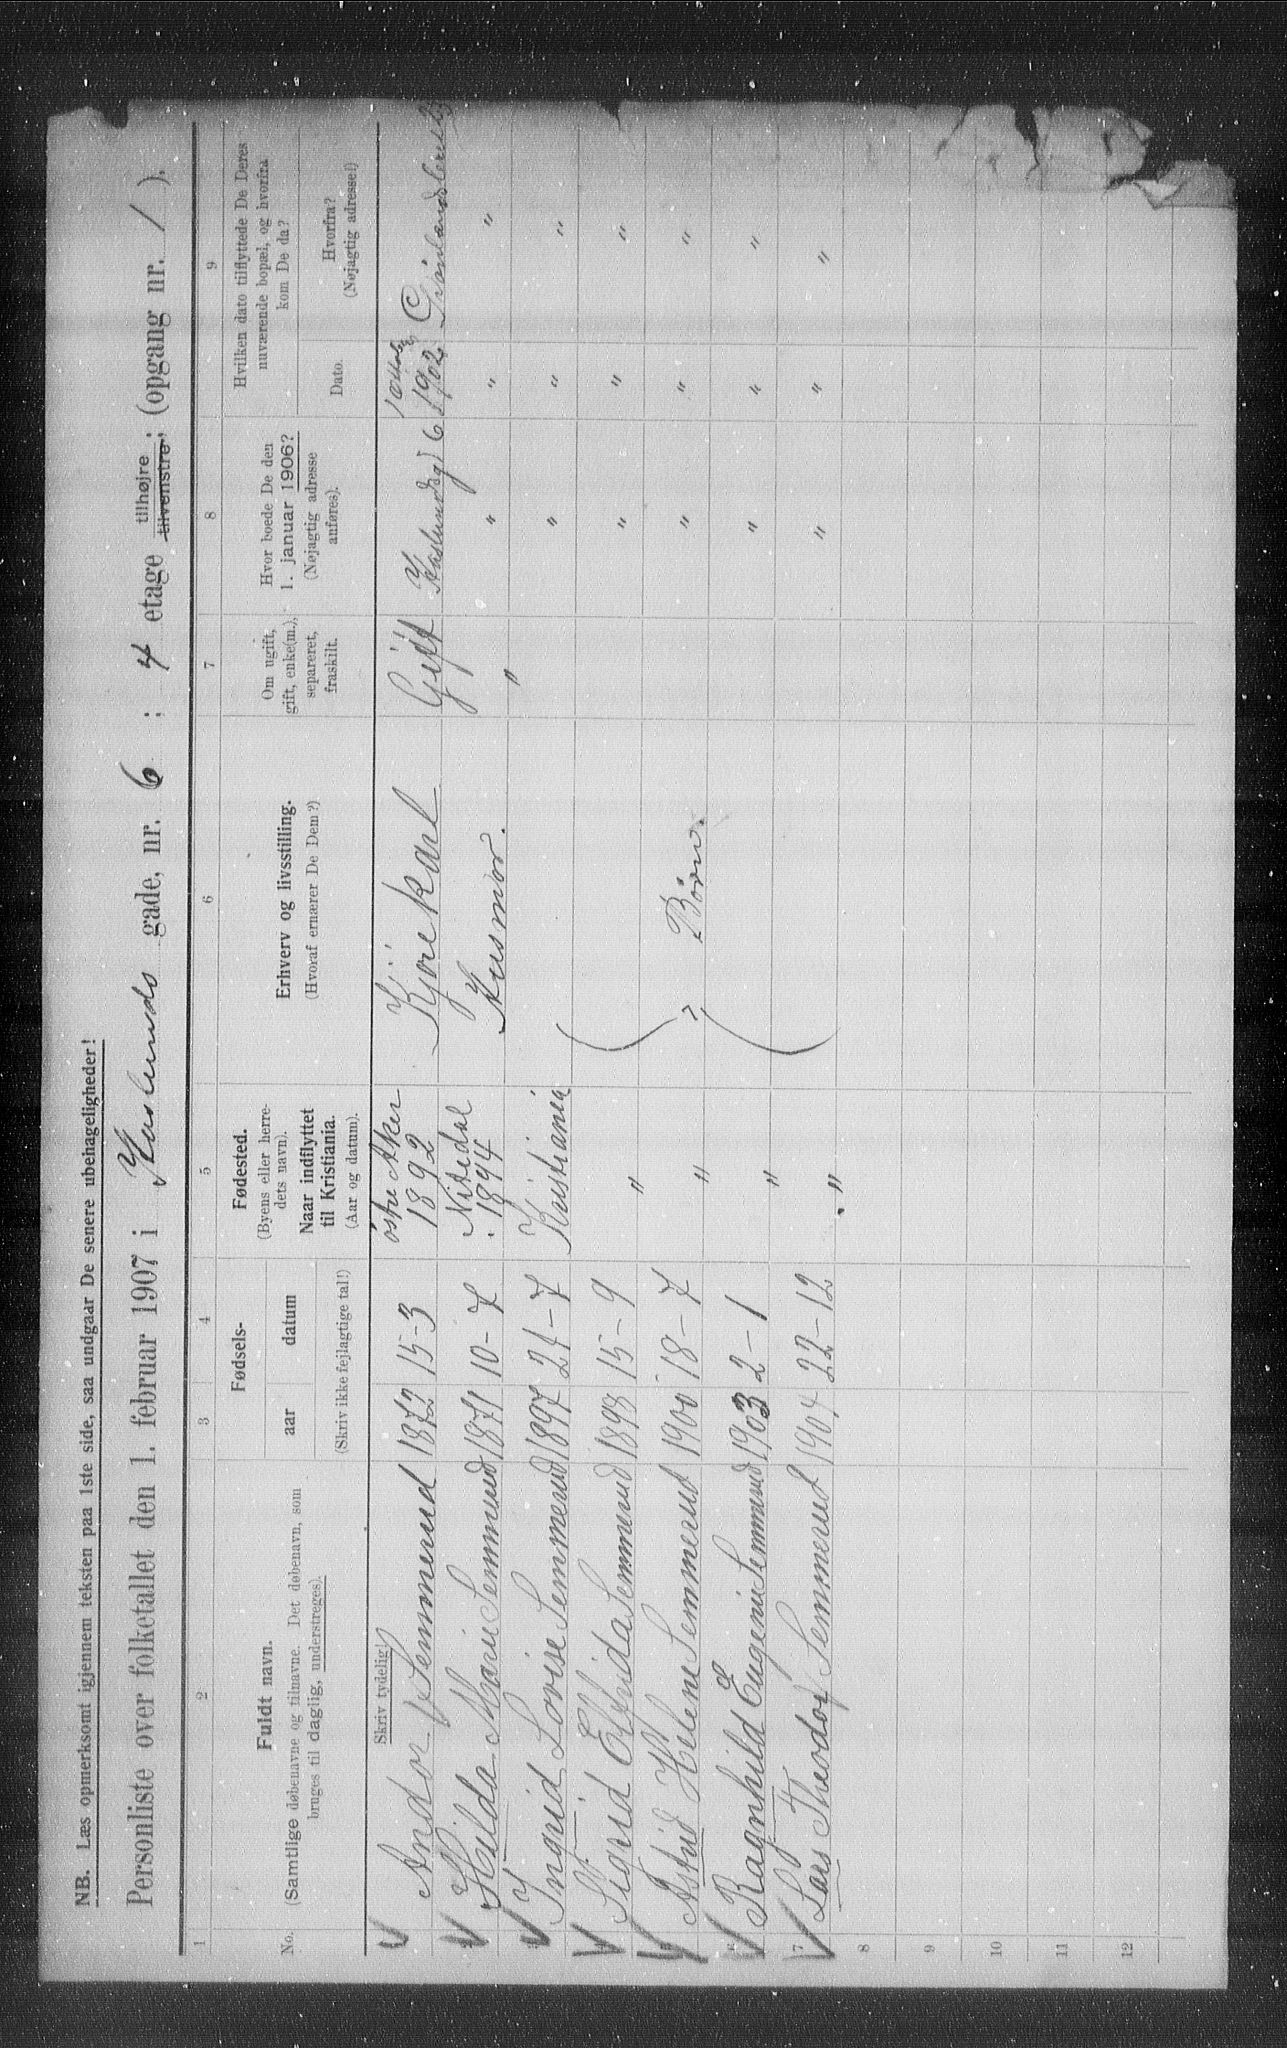 NB. Læs opmerksomt igjennem teksten paa 1ste side, saa undgaar De senere ubehageligheder!
Personliste over folketallet den 1. februar 1907 i Haslunds gade, nr. 6 : 4 etage tilhøjre tilvenstre; (opgang nr. 1 ).
1 2 3 4 5 6 7 8 9
No.
Fuldt navn.
(Samtlige døbenavne og tilnavne. Det døbenavn, som
bruges til daglig, understreges).
Skriv tydelig!
Fødsels-
aar datum
(Skriv ikke fejlagtige tal!)
Fødested.
(Byens eller herre-
dets navn).
Naar indflyttet
til Kristiania.
(Aar og datum).
Erhverv og livsstilling.
(Hvoraf ernærer De Dem?)
Om ugift,
gift, enke(m.),
separeret,
fraskilt.
Hvor boede De den
1. januar 1906?
(Nøjagtig adresse
anføres).
Hvilken dato tilflyttede De Deres
nuværende bopæl, og hvorfra
kom De da?
Dato.
Hvorfra?
(Nøjagtig adresse!)
Andor Semmerud 1872 15-3 östre Aker 1892 Kjørekarl Gift Haslundsg 6 1902
Hilda Marie Semmerud 1871 10-7 Nitedal 1894 Husmor. " " " "
Ingrid Lovise Semmerud 1897 21-7 Kristiania " " "
Sigrid Elfrida Semmerud 1898 15-9 " " " "
Astrid Helene Semmerud 1900 18-7 " Børn. " " "
6 Ragnhild Eugenie Semmerud 1903 2-1 " " " "
7 Lars Theodor Semmerud 1904 22-12 " " " "
8
9
10
11
12